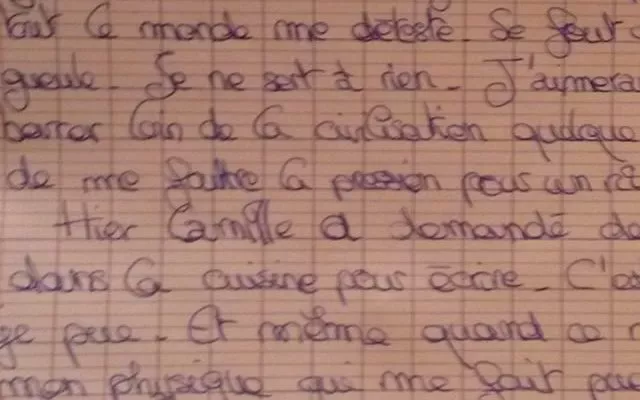 Tout le monde me déteste. Je
gueule. Je ne sert à rien. J'aimerai
barrer loin de la civilisation quelque
de me foutre la pression pour un
Hier Camille a demandé de
dans la cuisine pour écrire. C'es
je pue. Et même quand ce
mon physique qui me fait